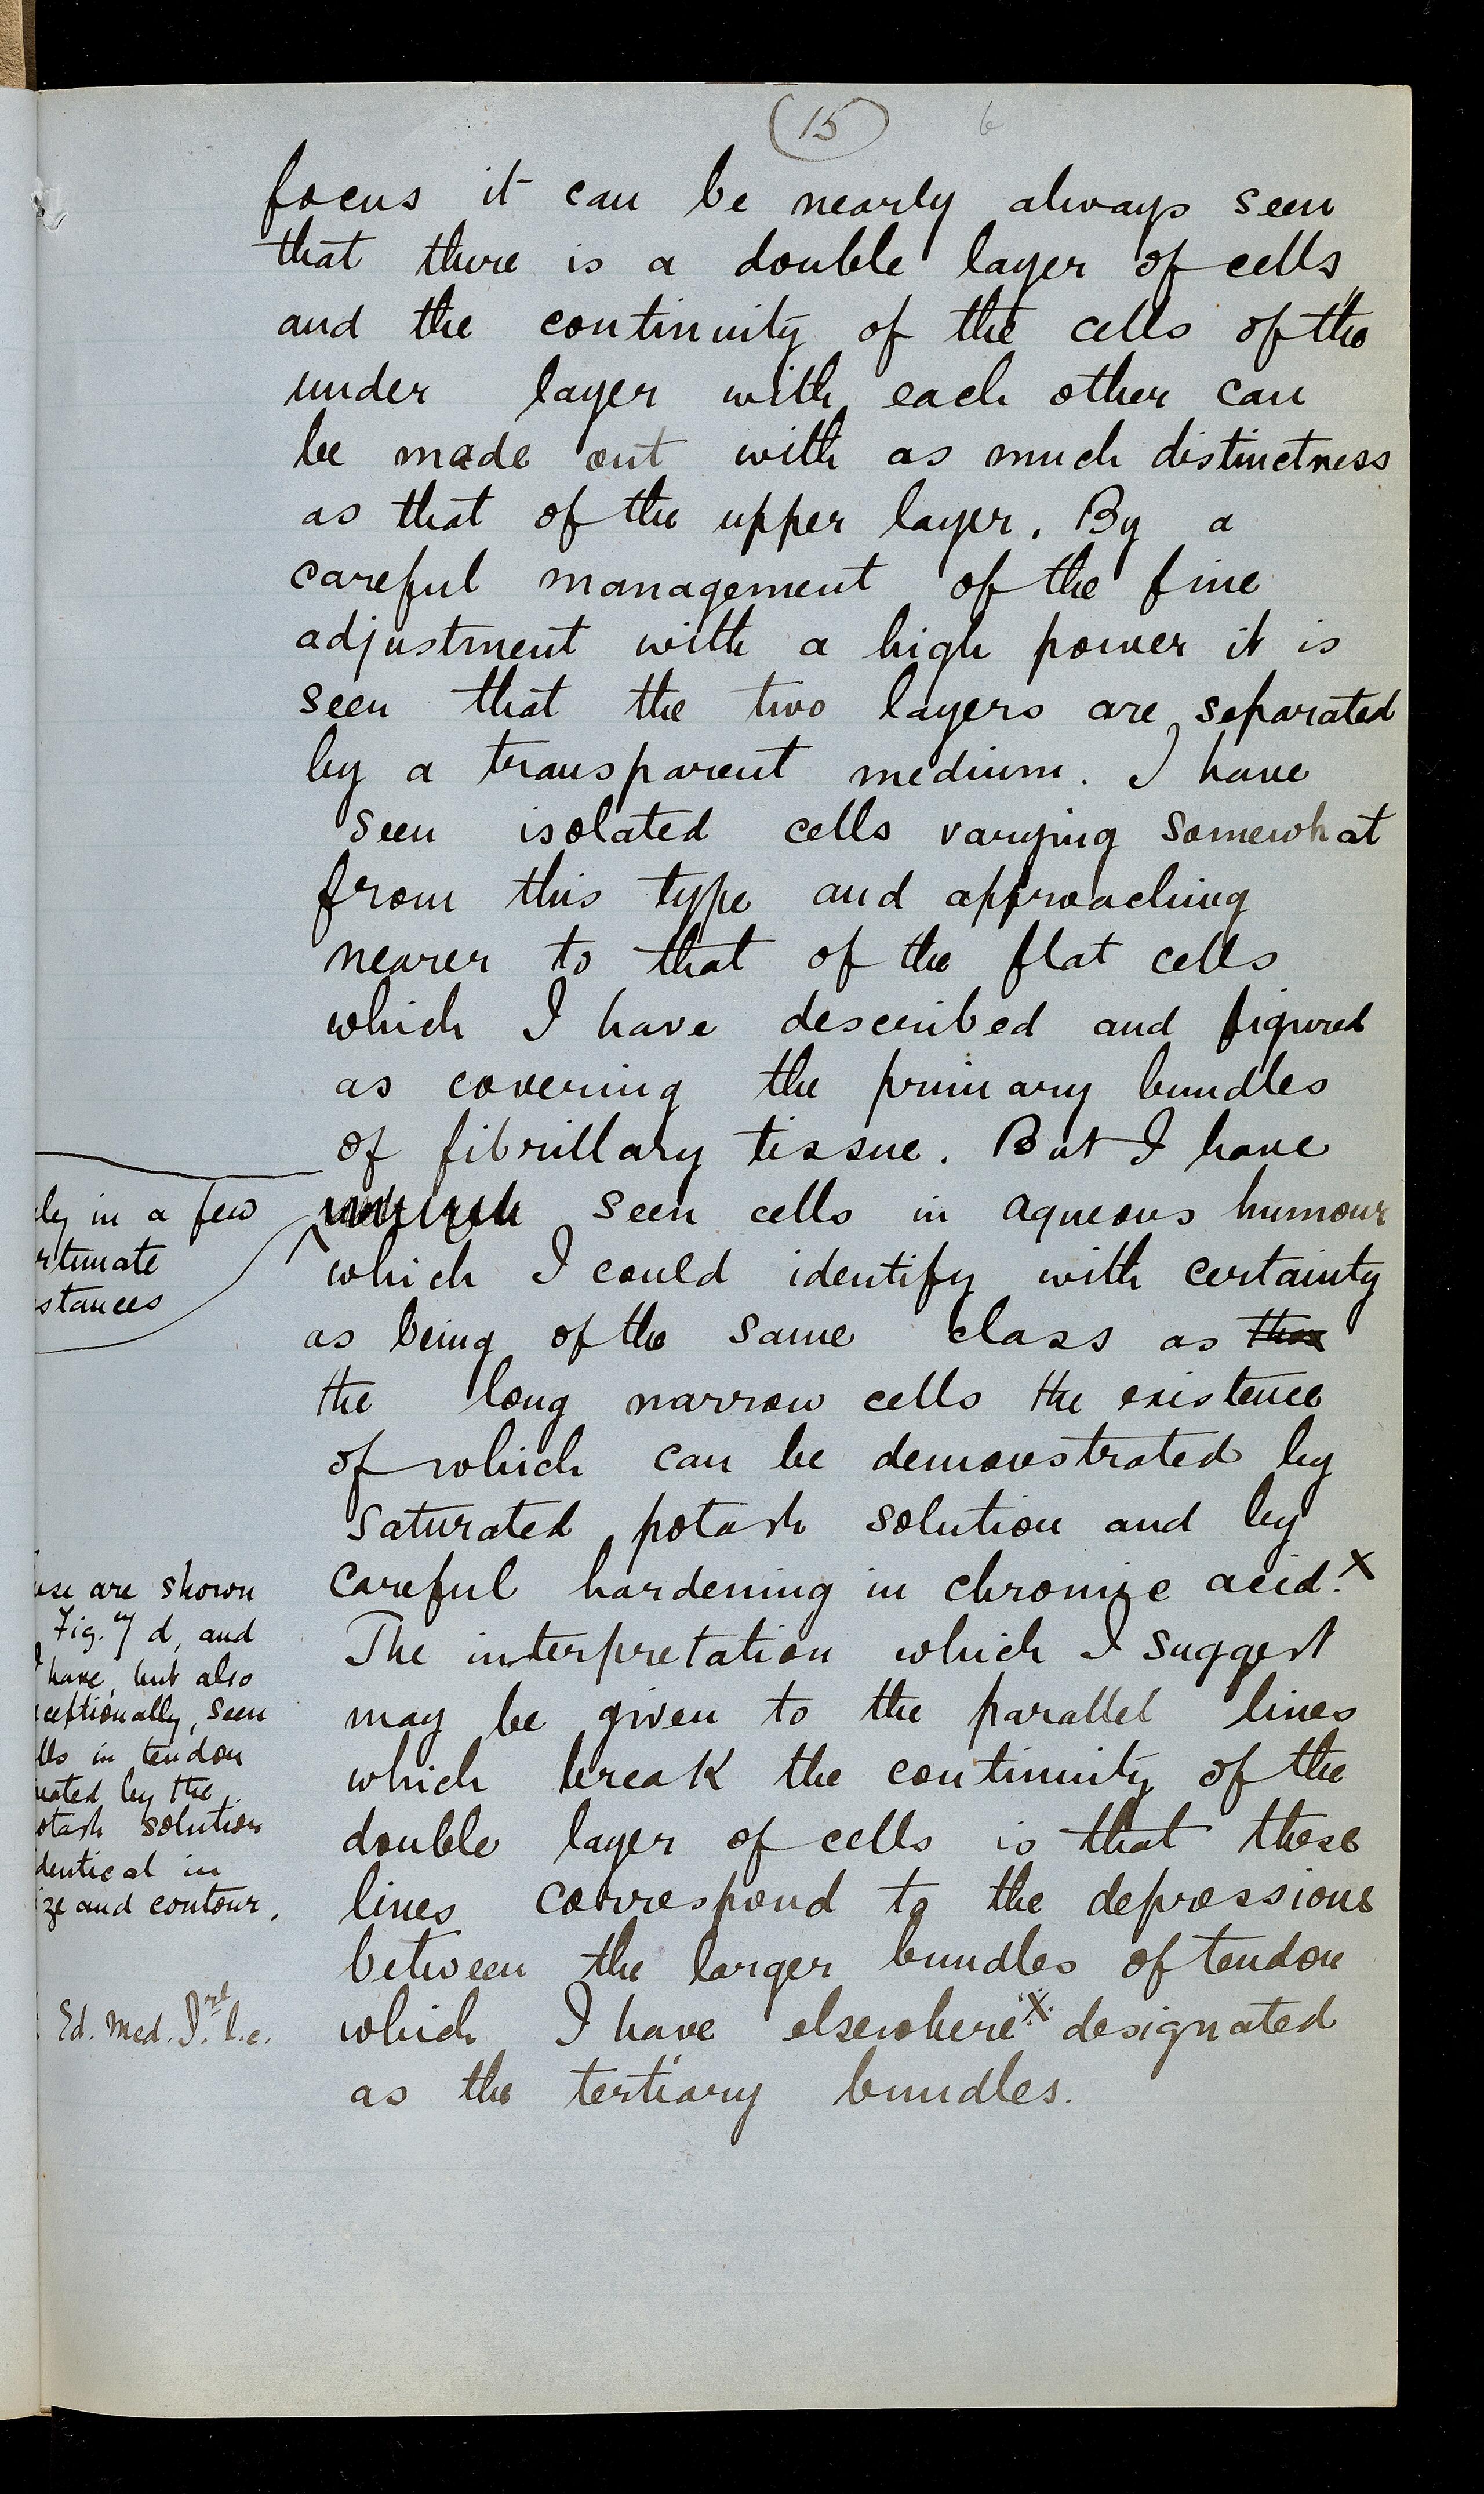 (15)
focus it can be nearly always seen
that there is a double layer of cells,
and the continuity of the cells of the
under layer with each other can
be made out with as much distinctness
as that of the upper layer. By a
careful management of the fine
adjustment with a high power it is
seen that the two layers are separated
by a transparent medium. I have
seen isolated cells varying somewhat
from this type and approaching
nearer to that of the flat cells
which I have described and figured
as covering the primary bundles
of fibrillary tissue. But I have
seen cells in aqueous humour
which I could identify with certainty
as being of the same class as
the long narrow cells the existence
of which can be demonstrated by
saturated potash solution and by
careful hardening in chromic acid.x
The interpretation which I suggest
may be given to the parallel lines
which break the continuity of the
double layer of cells is that these
lines correspond to the depressions
between the larger bundles of tendon
which I have elsewhere x designated
as the tertiary bundles.
ly in a few
rtunate
stances
ese are shown
Fig. 7 d, and
I have, but also
ceptionally, seen
lls in tendon
nated by the
otash solution
dentical in
ze and contour.
Ed. Med. Jnl. l.c.